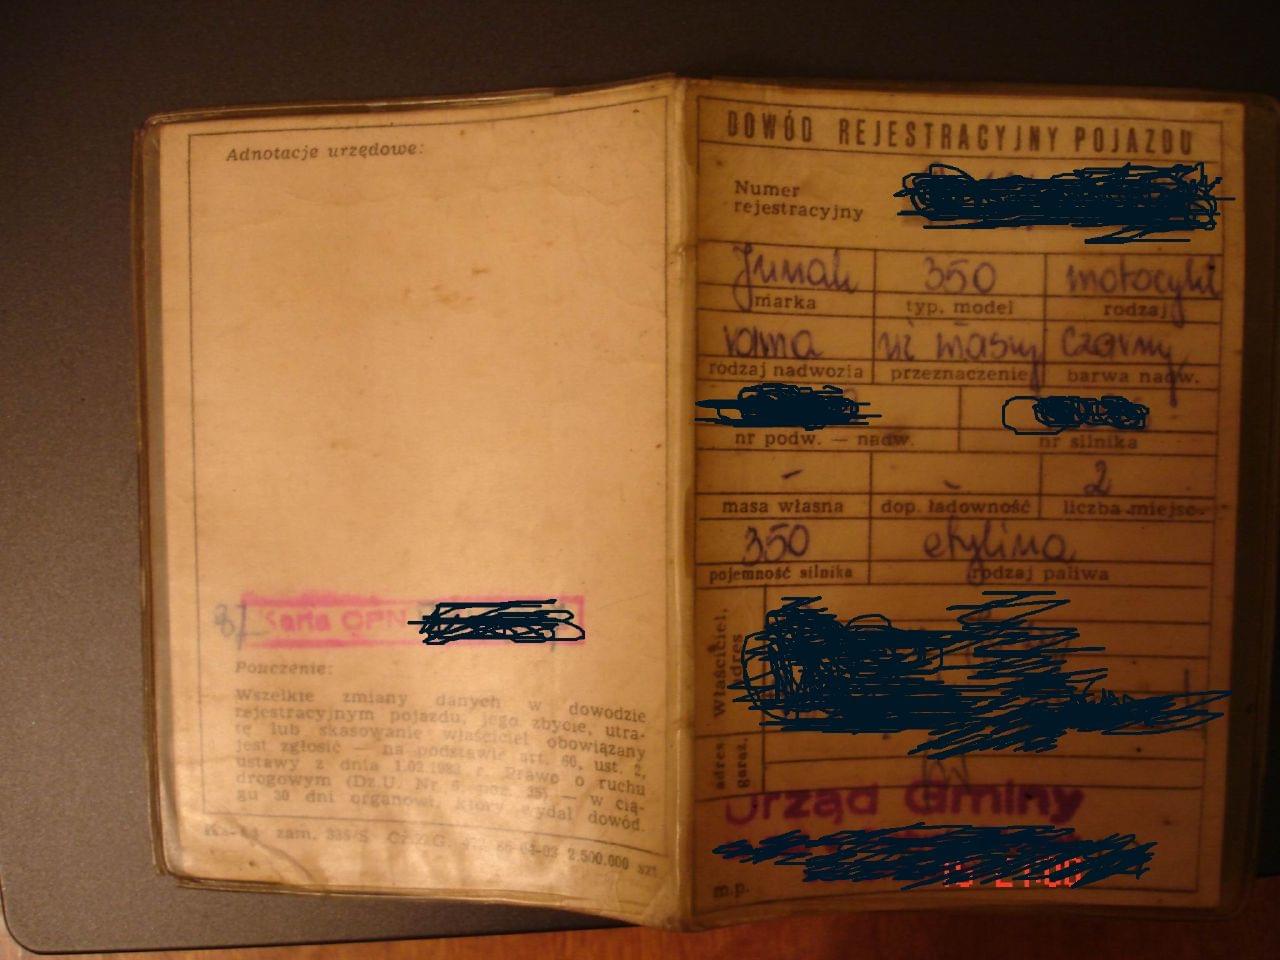 Adnotacje urzędowe:
87 Karta OPN
Pouczenie:
Wszelkie zmiany danych w dowodzie
rejestracyjnym pojazdu, jego zbycie, utra-
tę lub skasowanie właściciel obowiązany
jest zgłosić — na podstawie art. 60, ust. 2,
ustawy z dnia 1.02.1983 r. Prawo o ruchu
drogowym (Dz.U. Nr 6, poz. 35) — w cią-
gu 30 dni organowi, który wydał dowód.
zam. 2.500.000 szt
DOWÓD REJESTRACYJNY POJAZDU
Numer
rejestracyjny
Junak 350 motocykl
marka typ. model rodzaj
rama czarny
rodzaj nadwozia przeznaczenie barwa nadw.
nr podw. — nadw. nr silnika
- - 2
masa własna dop. ładowność liczba miejsc
350 etylina
pojemność silnika rodzaj paliwa
Właściciel,
adres
adres
garaż.
Urząd Gminy
m.p.